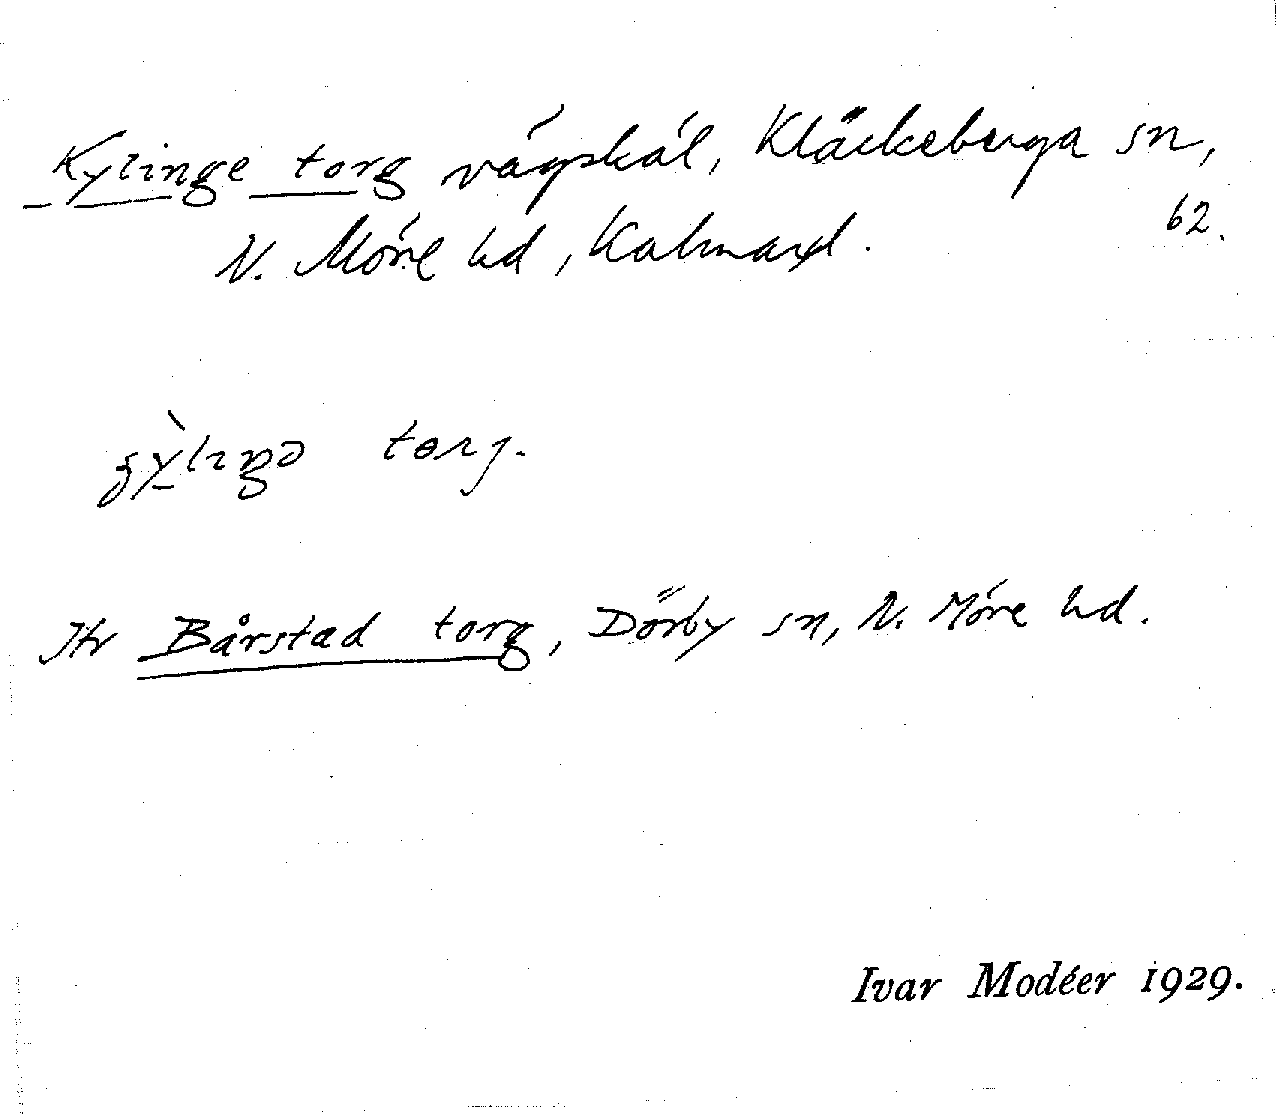 Kylinge torg vägskäl, Kläckeberga sn,
62.
N. Möre hd, Kalmar l.
torg.
Jfr Bårstad torg, Dörby sn, N. Möre hd.
Ivar Modéer 1929.